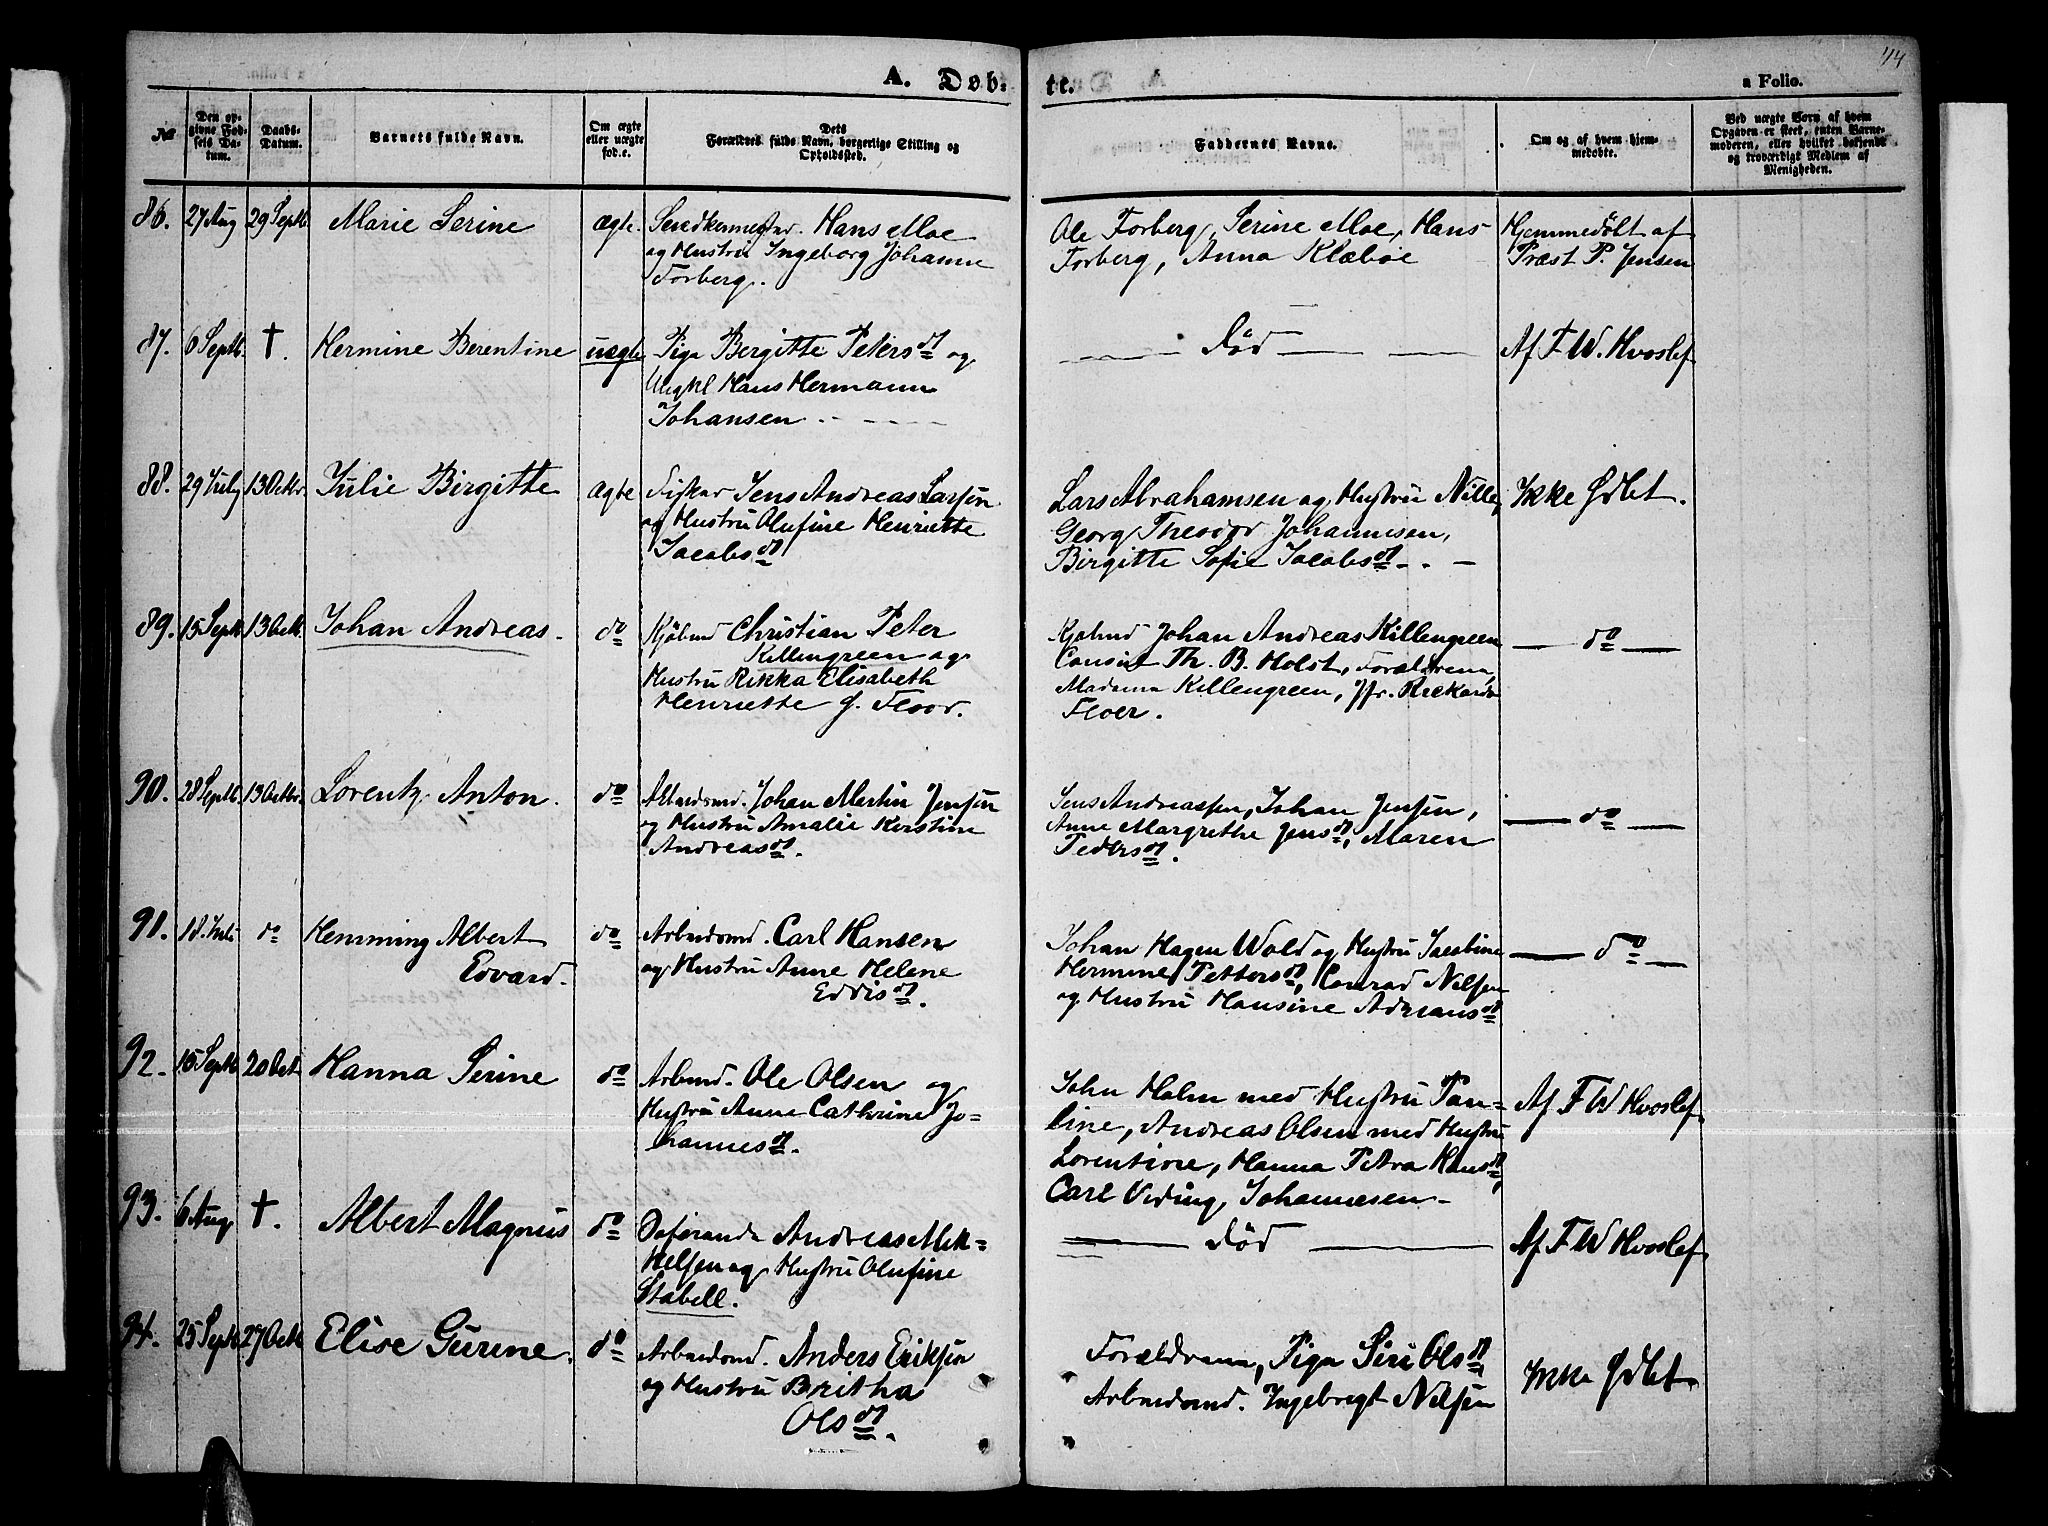 44
A. Døb-
te.
a Folio.
№
Den op-
givne Fød-
sels Da-
tum.
Daabs-
Datum.
Barnets fulde Navn.
Om ægte
eller uægte
fød.e.
Dets
Forældres fulde Navn, borgerlige Stilling og
Opholdssted.
Faddernes Navne.
Om og af hvem hjem-
medøbte.
Ved uægte Børn af hvem
Opgaven er skeet, enten Barne-
moderen, eller hvilket bekjendt
og troværdigt Medlem af
Menigheden.
86. 27 Aug 29 Septb. Marie Serine ægte. Hans Moe
og Hustru Ingeborg Johanne
Forberg.
Ole Forberg, Serine Moe, Hans
Forberg, Anna Klæboe
Hjemmedøbt af
Præst P. Jensen
87. 6 Septb. †. Hermine Berentine uægte Pige Bergitte Petersdt og
Ungkl Hans Hermann
Johansen
Død
Af F W. Hvoslef
88. 29 July 13 Octbr. Julie Birgitte ægte Fisker Jens Andreas Larsen
og Hustru Olufine Henriette
Jacobsdt
Lars Abrahamsen og Hustru Nille,
Georg Theodor Johannesen,
Birgitte Sofie Jacobsdt
Ikke Døbt.
89. 15 Septb. 13 Octb. Johan Andreas. do Kjøbmd Christian Peter
Killengreen og
Hustru Rikka Elisabeth
Henriette f. Floor.
Kjøbmd Johan Andreas Killengreen
Th. B. Holst, Forældrene,
Madame Killengreen, Jfr.
Floer.
do
90. 28 Septb. 13 Octbr. Lorentz Anton. do Arbeidsmd. Johan Martin Jensen
og Hustru Amalie Kerstine
Andreasdt.
Jens Andreassen, Johan Jensen,
Anne Margrethe Jensdt, Maren
Pedersdt.
do
91. 18. Juli do Hemming Albert
Edvard.
do Arbeidsmd. Carl Hansen
og Hustru Anne Helene
Eddisdt.
Johan Hagen Wold og Hustru Jacobine
Hermine Pettersdt, Conrad Nilsen
og Hustru Hansine Adriansdt
do
92. 15 Septb 20 Oct. Hanna Serine do Arbmd. Ole Olsen og
Hustru Anne Cathrine Jo-
hannesdt.
John Holm med Hustru Pau-
line, Andreas Olsen med Hustru
Lorentine, Hanna Petra Hansdt,
Carl Johannesen
Af F W Hvoslef
93. 6 Aug. †. Albert Magnus do Andreas Mik-
kelsen og Hustru Olufine
Stabell.
Død
Af F W Hvoslef
94. 25 Septb 27 Octb Elise Gurine. do Arbeidsmd. Anders Eriksen
og Hustru Britha
Olsdt.
Forældrene, Pige Siri Olsdt,
Arbeidsmd. Ingebregt Nilsen
Ikke Døbt